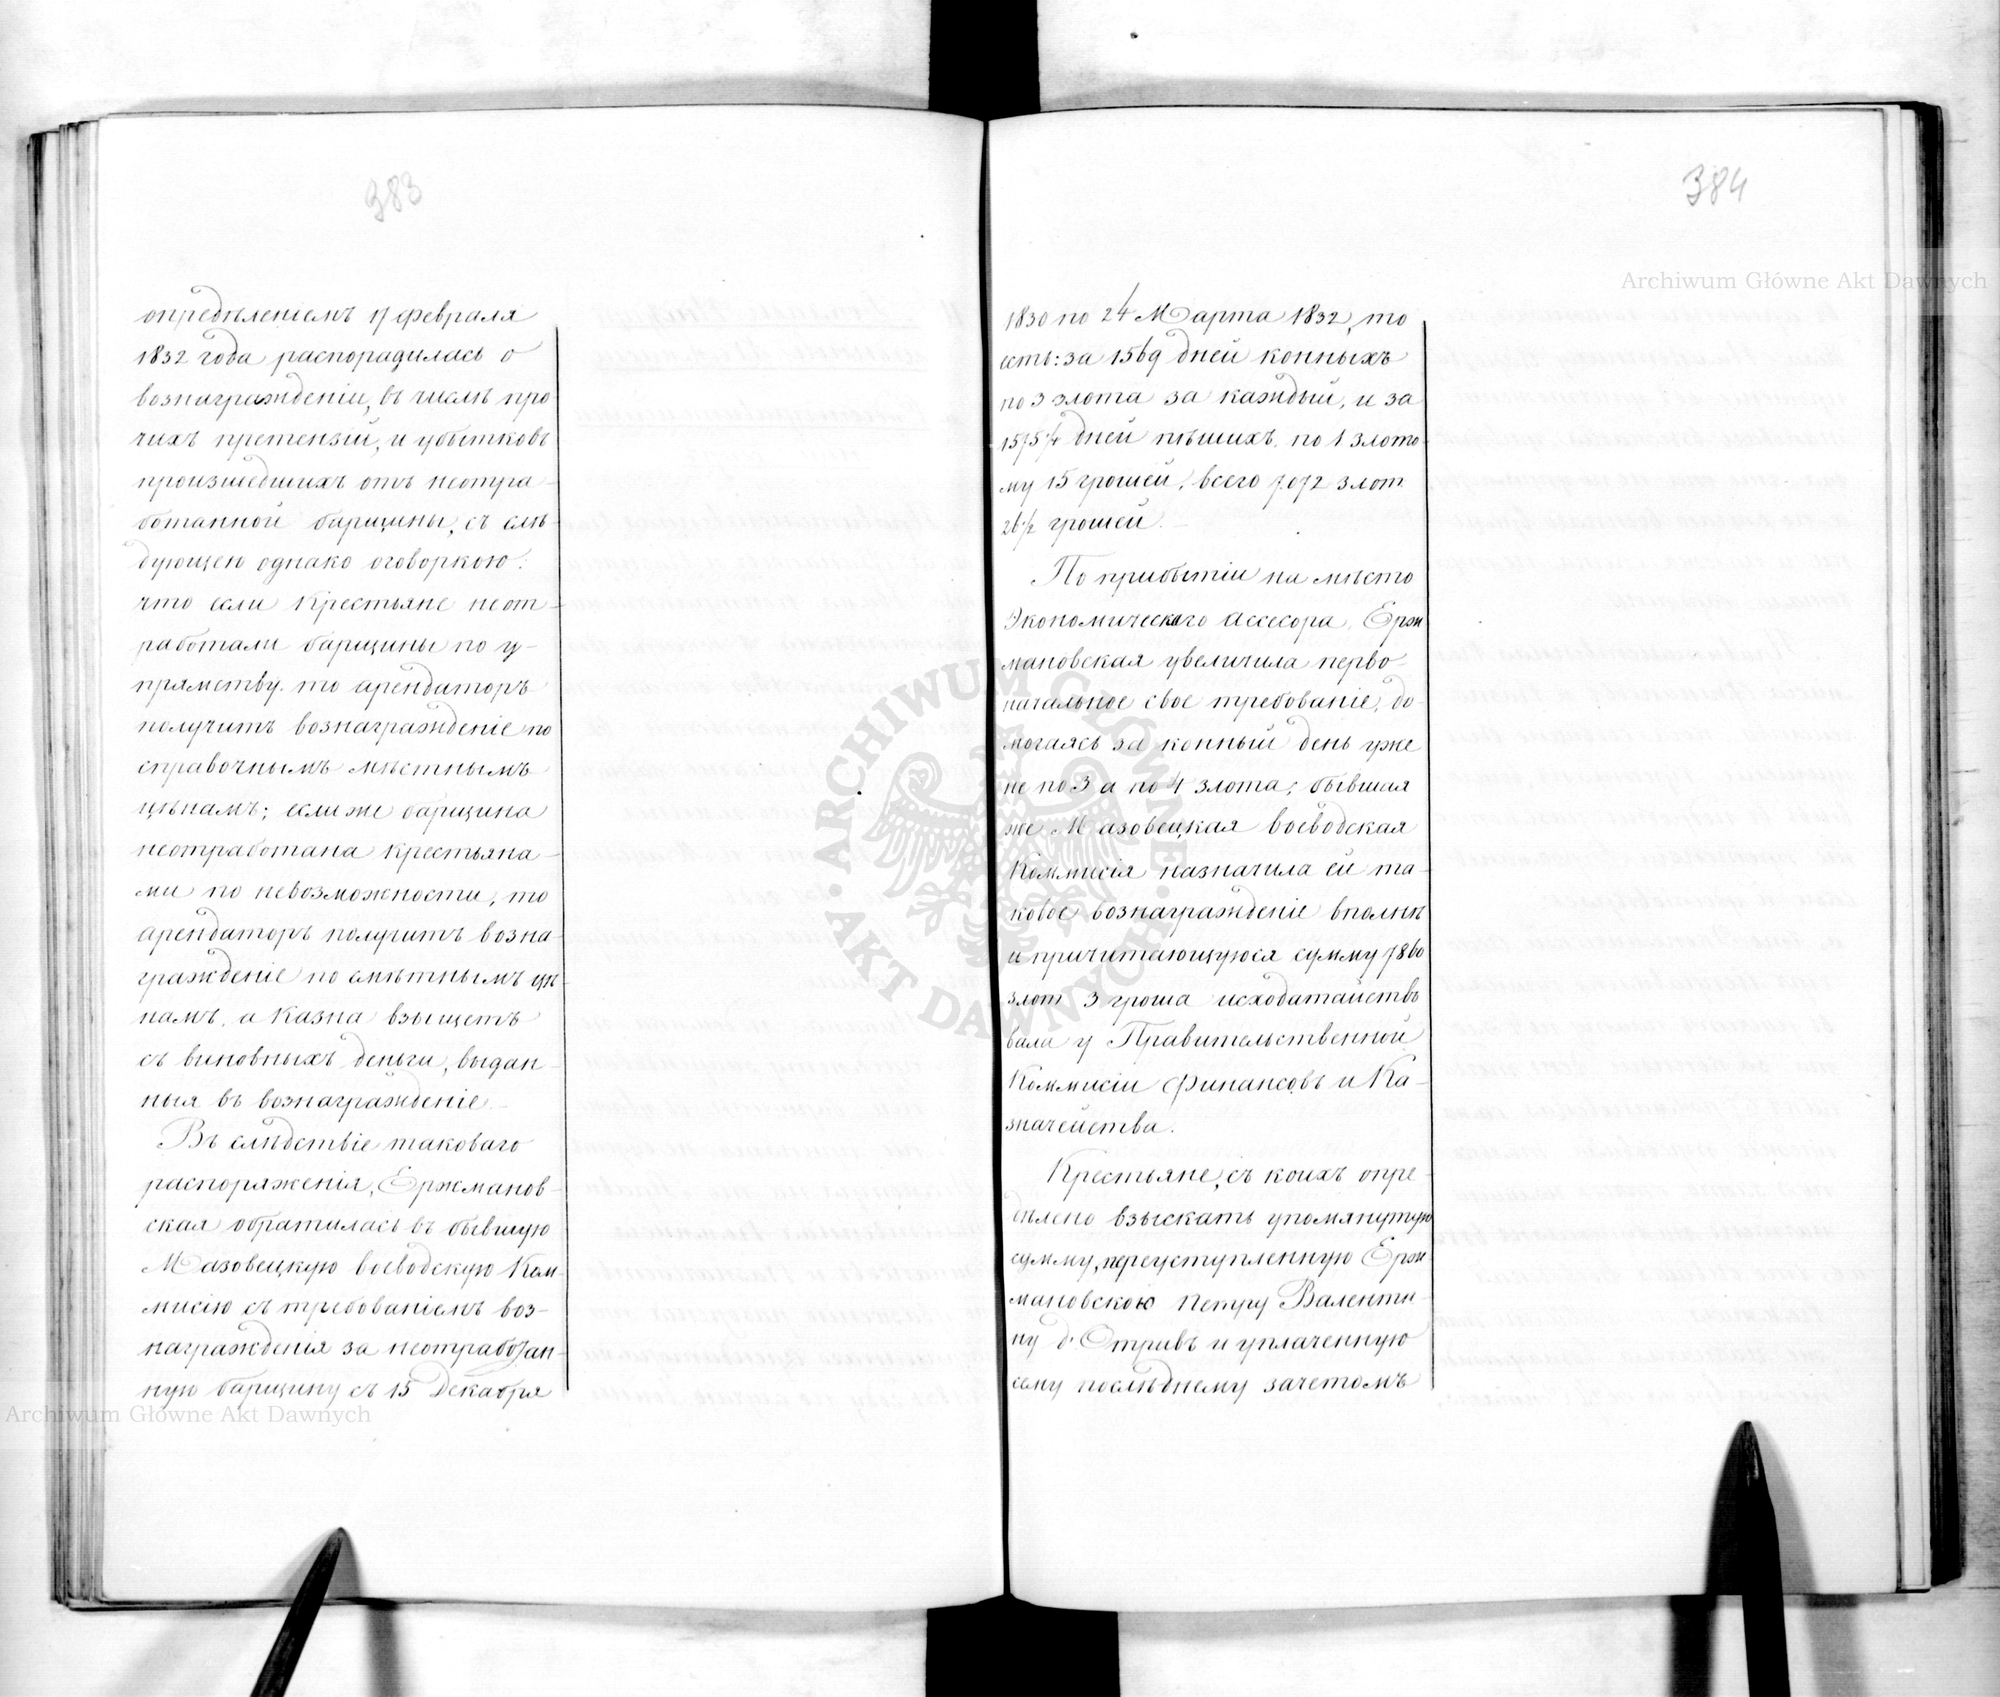 383
опредѣленіемъ 17 февраля
1832 года распорядилась о
вознагражденіи, въ числѣ про
чихъ претензій, и убытковъ
произшедшихъ отъ неотра-
ботанной барщины, съ слѣ-
дующею однако оговоркою:
что если Крестьяне неот-
работали барщины по у-
прямству. то арендаторъ
получитъ вознагражденіе по
справочнымъ мѣстнымъ
цѣнамъ; если же барщина
неотработана крестьяна-
ми по невозможности, то
арендаторъ получитъ возна-
гражденіе по смѣтнымъ цѣ-
намъ, а Казна взыщетъ
съ виновныхъ деньги, выдан-
ныя въ вознагражденіе.
Въ слѣдствіе таковаго
распоряженія, Ержманов-
ская обратилась въ бывшую
Мазовецкую воеводскую Ком-
мисію съ требованіемъ воз-
награжденія за неотработан-
ную барщину съ 15 Декабря
384
1830 по 24 Марта 1832, то
есть: за 1569 дней конныхъ
по 3 злота за каждый, и за
дней пѣшихъ по 1 злото-
му 15 грошей, всего 7072 злот.
26½ грошей.
По прибытіи на мѣсто
Экономическаго Ассесора, Ерж
мановская увеличила перво-
начальное свое требованіе, до-
могаясь за конный день уже
не по 3 а по 4 злота; бывшая
же Мазовецкая воеводская
Коммисія назначила ей та-
ковое вознагражденіе вполнѣ
и причитающуюся сумму 7860
злот 3 гроша исходатайство
вала у Правительственной
Коммисіи Финансовъ и Ка-
значейства.
Крестьяне, съ коихъ опре-
дѣлено взыскать упомянутую
сумму, переуступленную Ерж
мановскою Петру Валенти-
ну д' Отривъ и уплаченную
сему послѣднему зачетомъ
Archiwum Główne Akt Dawnych
Archiwum Główne Akt Dawnych
ARCHIWUM GŁÓWNE
AKT DAWNYCH